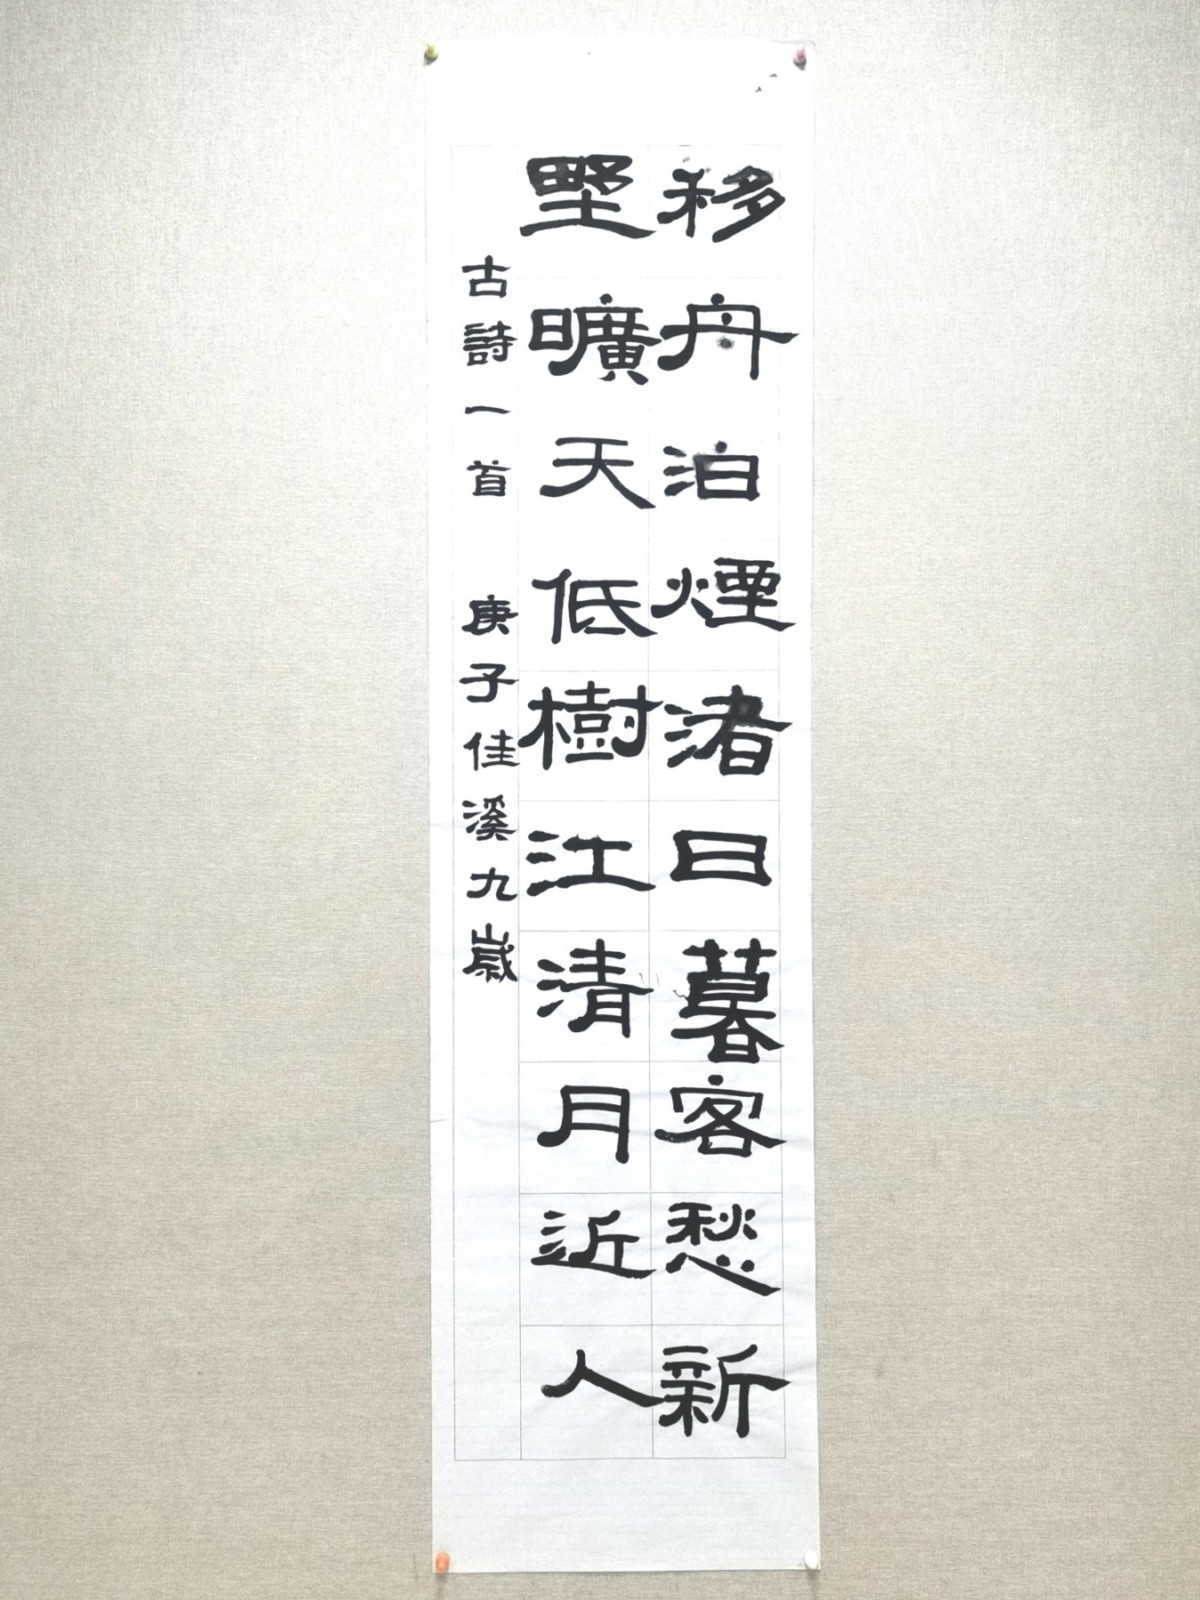 移舟泊煙渚日暮客愁新
野曠天低樹江清月近人
古詩一首 庚子佳溪九歲